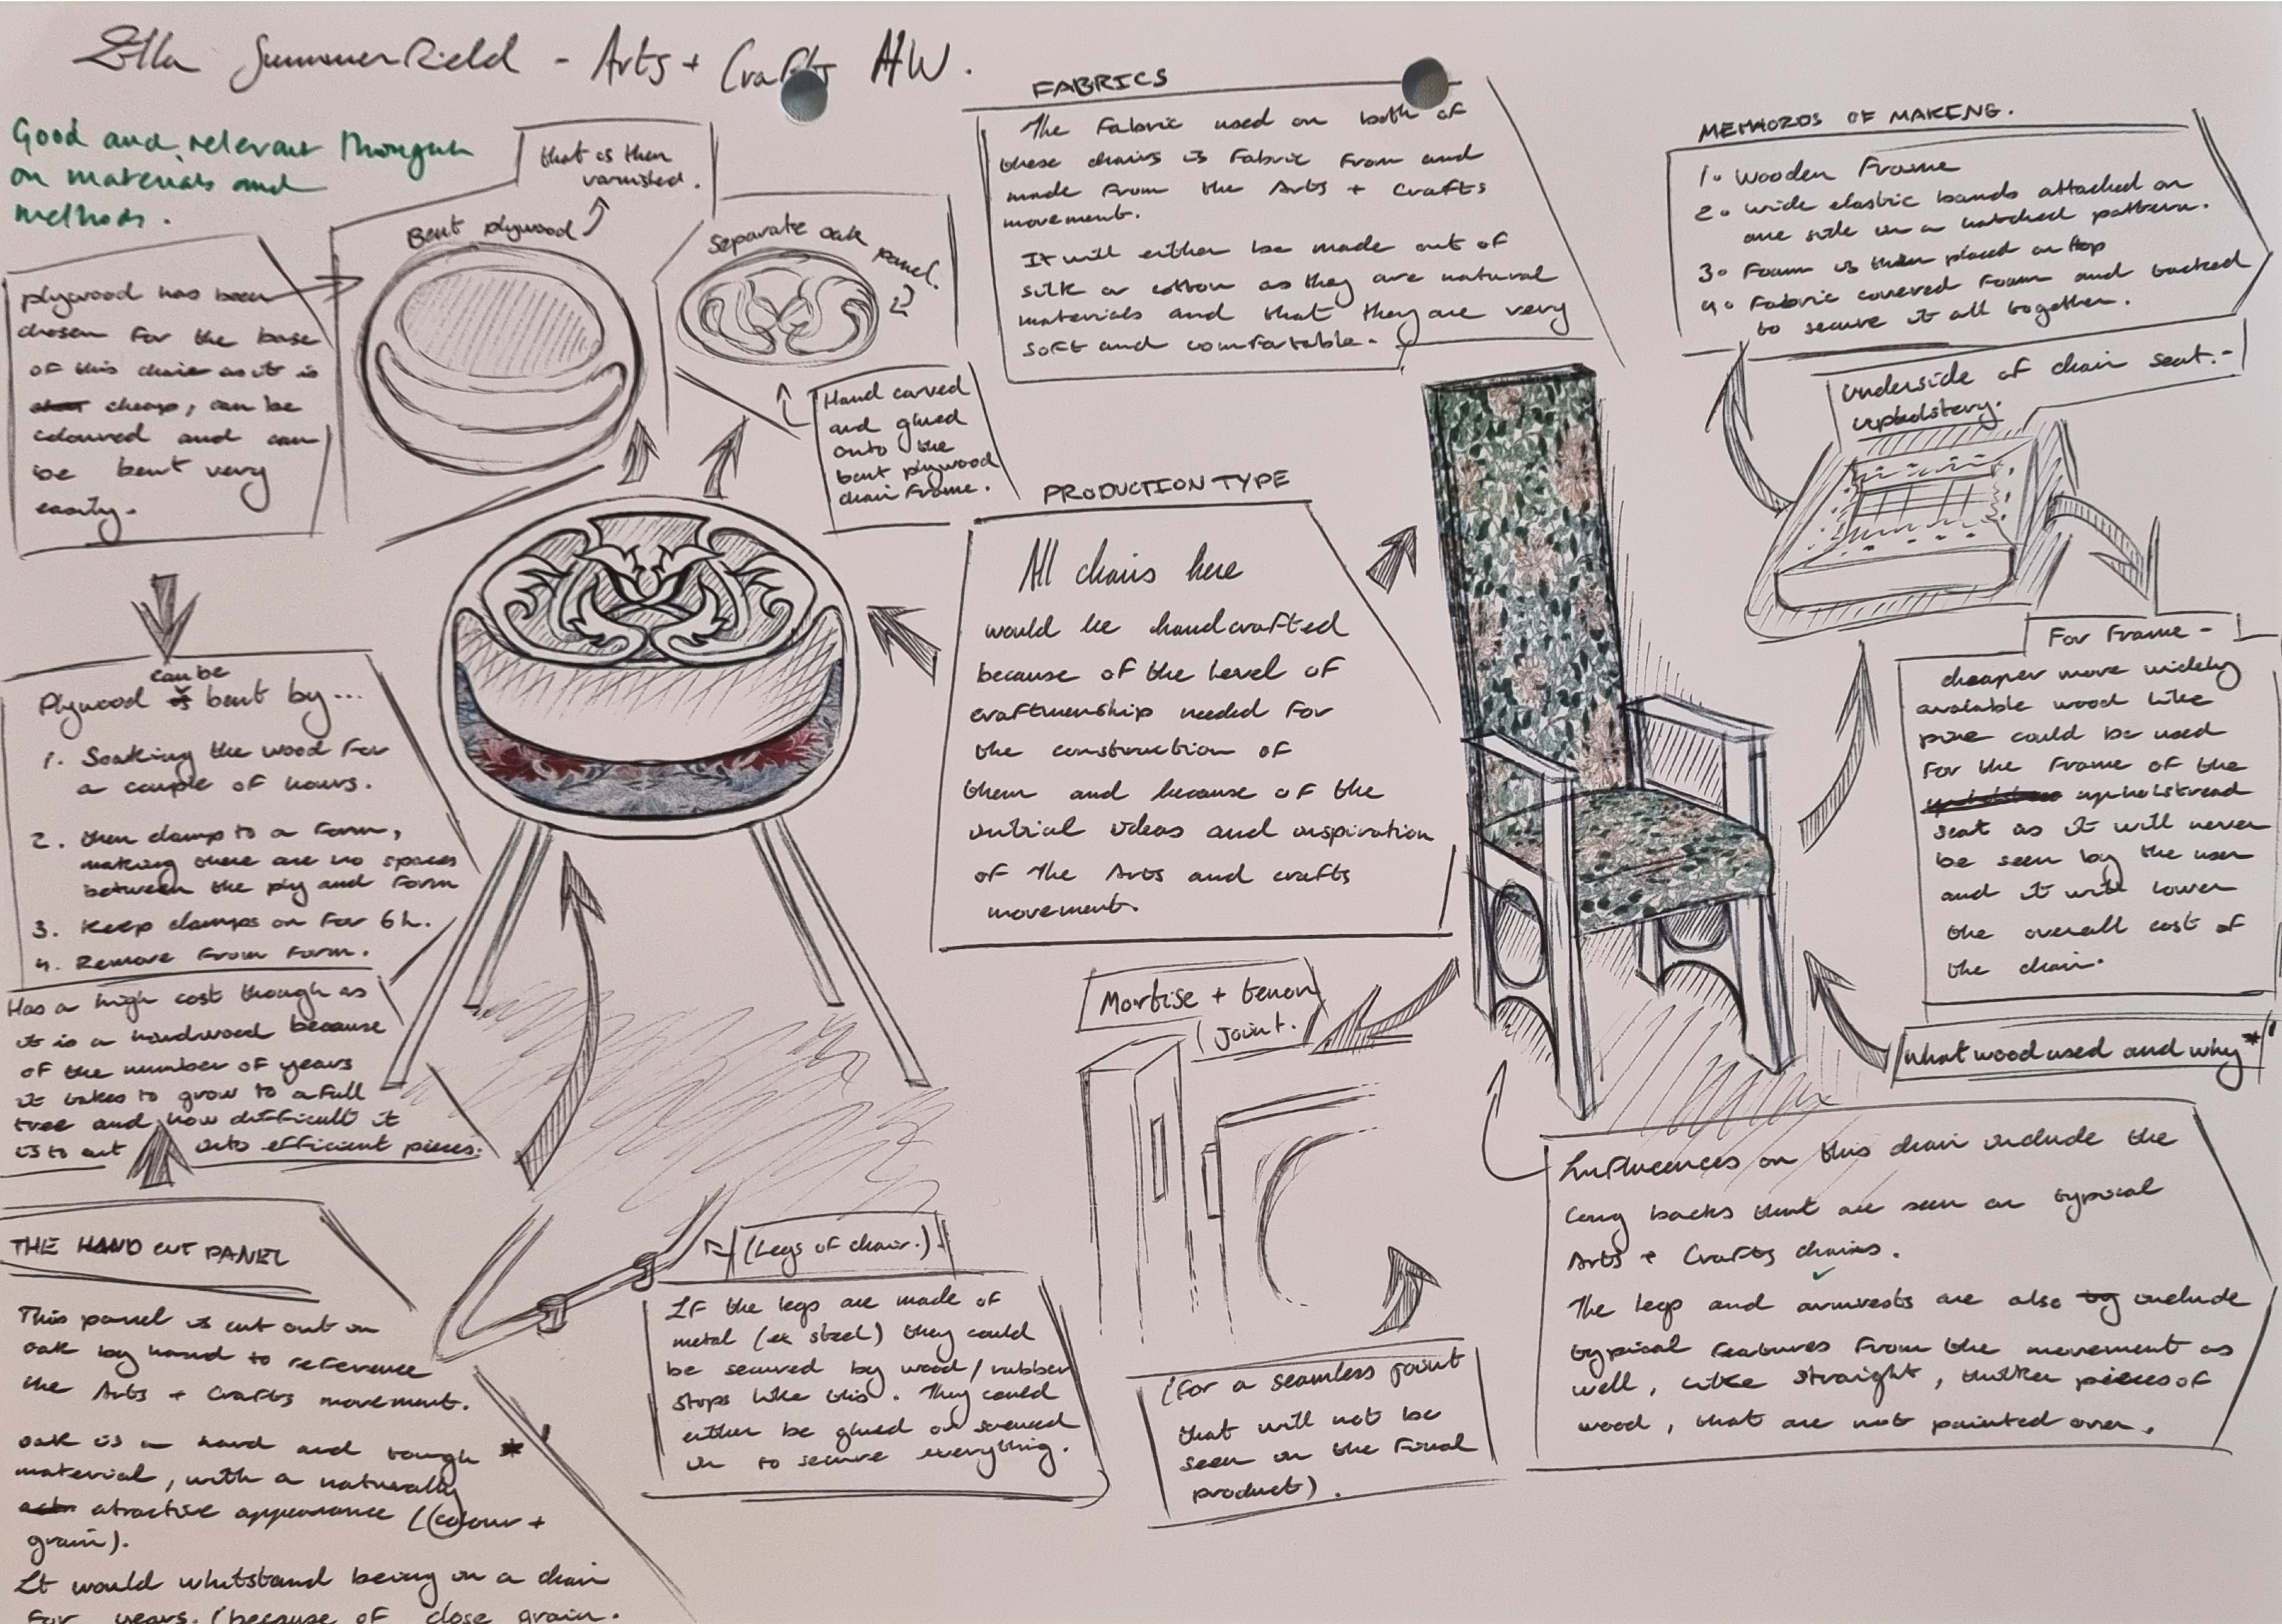 Ella Summerfield - Arts + Crafts HW.
Good and relevant thought
on materials and
methods.
that is then
varnished.
Bent plywood
Separate oak
panel.
plywood has been
chosen for the base
of this chair as it is
cheap, can be
coloured and can
be bent very
easily.
Hand carved
and glued
onto the
bent plywood
chair frame.
FABRICS
The fabric used on both of
these chairs is fabric from and
made from the Arts + Crafts
movement.
It will either be made out of
silk or cotton as they are natural
materials and that they are very
soft and comfortable.
METHORDS OF MAKING.
1. Wooden Frame
2. wide elastic bands attached on
one side in a hatched pattern.
3. Foam is then placed on top
4. Fabric covered foam and tacked
to secure it all together.
Underside of chair seat.-
upholstery.
PRODUCTION TYPE
All chairs here
would be handcrafted
because of the level of
craftmenship needed for
the construction of
them and because of the
initial ideas and inspiration
of the Arts and crafts
movement.
For Frame -
cheaper more widely
available wood like
pine could be used
for the frame of the
upholstread
seat as it will never
be seen by the user
and it will lower
the overall cost of
the chair.
can be
Plywood is bent by...
1. Soaking the wood for
a couple of hours.
2. then clamp to a form,
making there are no spaces
between the ply and form
3. Keep clamps on for 6h.
4. Remove from form.
Has a high cost though as
it is a hardwood because
of the number of years
it takes to grow to a full
tree and how difficult it
is to cut into efficient pieces.
Mortise + tenon
(Joint.
What wood used and why *'
THE HAND CUT PANEL
This panel is cut out in
oak by hand to reference
the Arts + Crafts movement.
oak is a hard and tough *'
material, with a naturally
atractive appearance (colour +
grain).
It would whitstand being on a chair
for years. (because of close grain.
(Legs of chair.)
If the legs are made of
metal (ex steel) they could
be secured by wood/rubber
stops like this. They could
either be glued or screwed
in to secure everything.
(For a seamless joint
that will not be
seen in the final
product).
Influences on this chair include the
long backs that are seen on typical
Arts + Crafts chairs.
The legs and armrests are also include
typical features from the movement as
well, like straight, thicker pieces of
wood, that are not painted over.